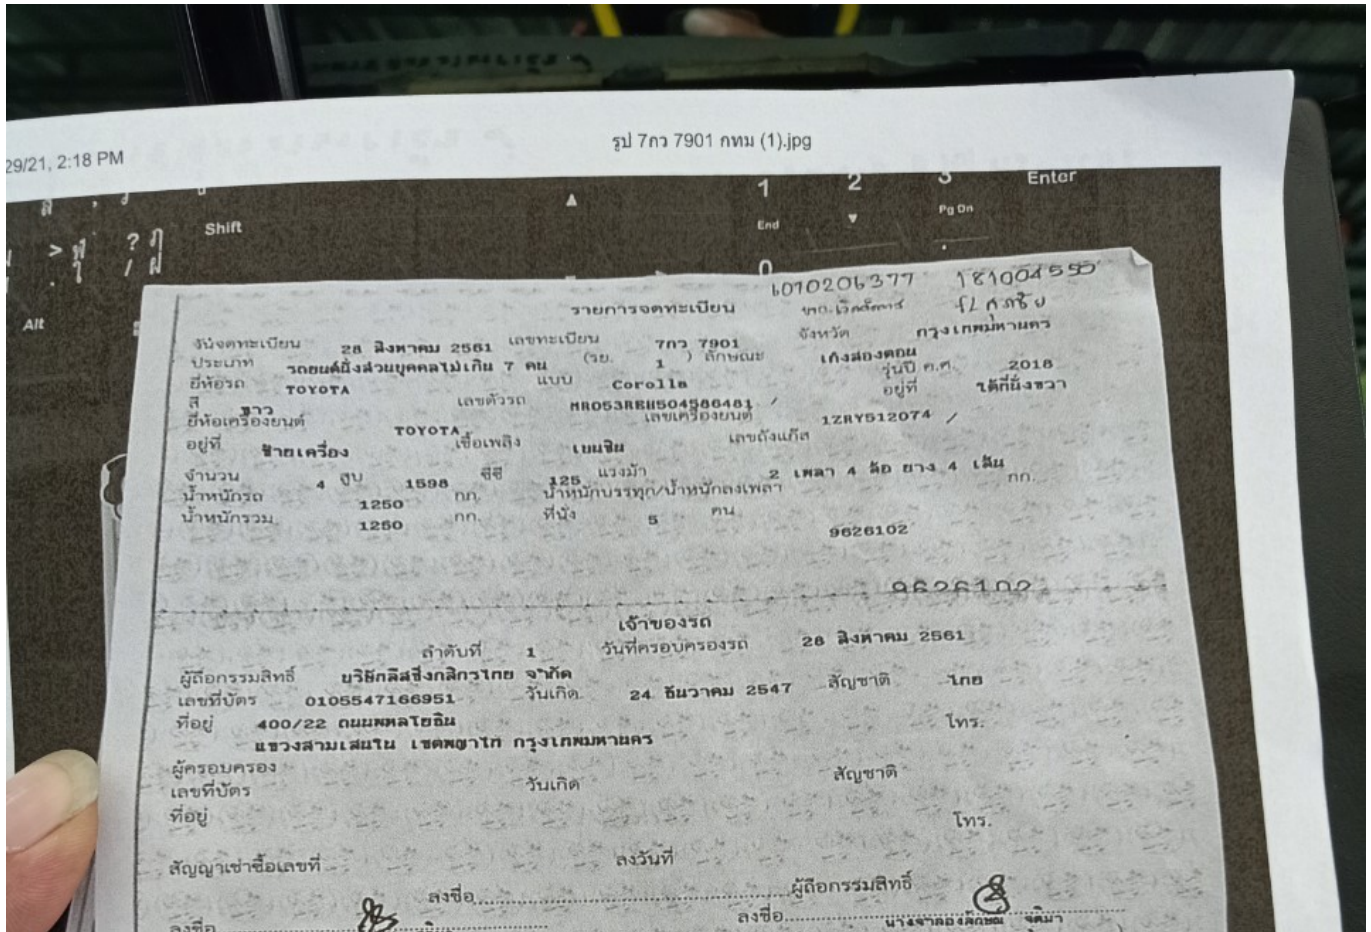 29/21, 2:18 PM
รูป 7กว 7901 กทม (1).jpg
Shift
Alt
1
End
2
3
Pg Dn
Enter
0
6070206377 181004555
รายการจดทะเบียน
วันจดทะเบียน 28 สิงหาคม 2561 เลขทะเบียน 7กว 7901 จังหวัด กรุงเทพมหานคร
ประเภท รถยนต์นั่งส่วนบุคคลไม่เกิน 7 คน (รย. 1 ) ลักษณะ เก๋งสองตอน
ยี่ห้อรถ TOYOTA แบบ Corolla รุ่นปี ค.ศ. 2018
สี ขาว เลขตัวรถ MR053REH504586481 / อยู่ที่ ใต้ที่นั่งขวา
ยี่ห้อเครื่องยนต์ TOYOTA เลขเครื่องยนต์ 1ZRY512074 /
อยู่ที่ ซ้ายเครื่อง เชื้อเพลิง เบนซิน เลขถังแก๊ส
จำนวน 4 สูบ 1598 ซีซี 125 แรงม้า 2 เพลา 4 ล้อ ยาง 4 เส้น
น้ำหนักรถ 1250 กก. น้ำหนักบรรทุก/น้ำหนักลงเพลา กก.
น้ำหนักรวม 1250 กก. ที่นั่ง 5 คน
9626102
9626102
เจ้าของรถ
ลำดับที่ 1 วันที่ครอบครองรถ 28 สิงหาคม 2561
ผู้ถือกรรมสิทธิ์ บริษัทลีสซิ่งกสิกรไทย จำกัด
เลขที่บัตร 0105547166951 วันเกิด 24 ธันวาคม 2547 สัญชาติ ไทย
ที่อยู่ 400/22 ถนนพหลโยธิน โทร.
แขวงสามเสนใน เขตพญาไท กรุงเทพมหานคร
ผู้ครอบครอง
เลขที่บัตร วันเกิด สัญชาติ
ที่อยู่ โทร.
สัญญาเช่าซื้อเลขที่ ลงวันที่
ลงชื่อ ผู้ถือกรรมสิทธิ์
ลงชื่อ ลงชื่อ